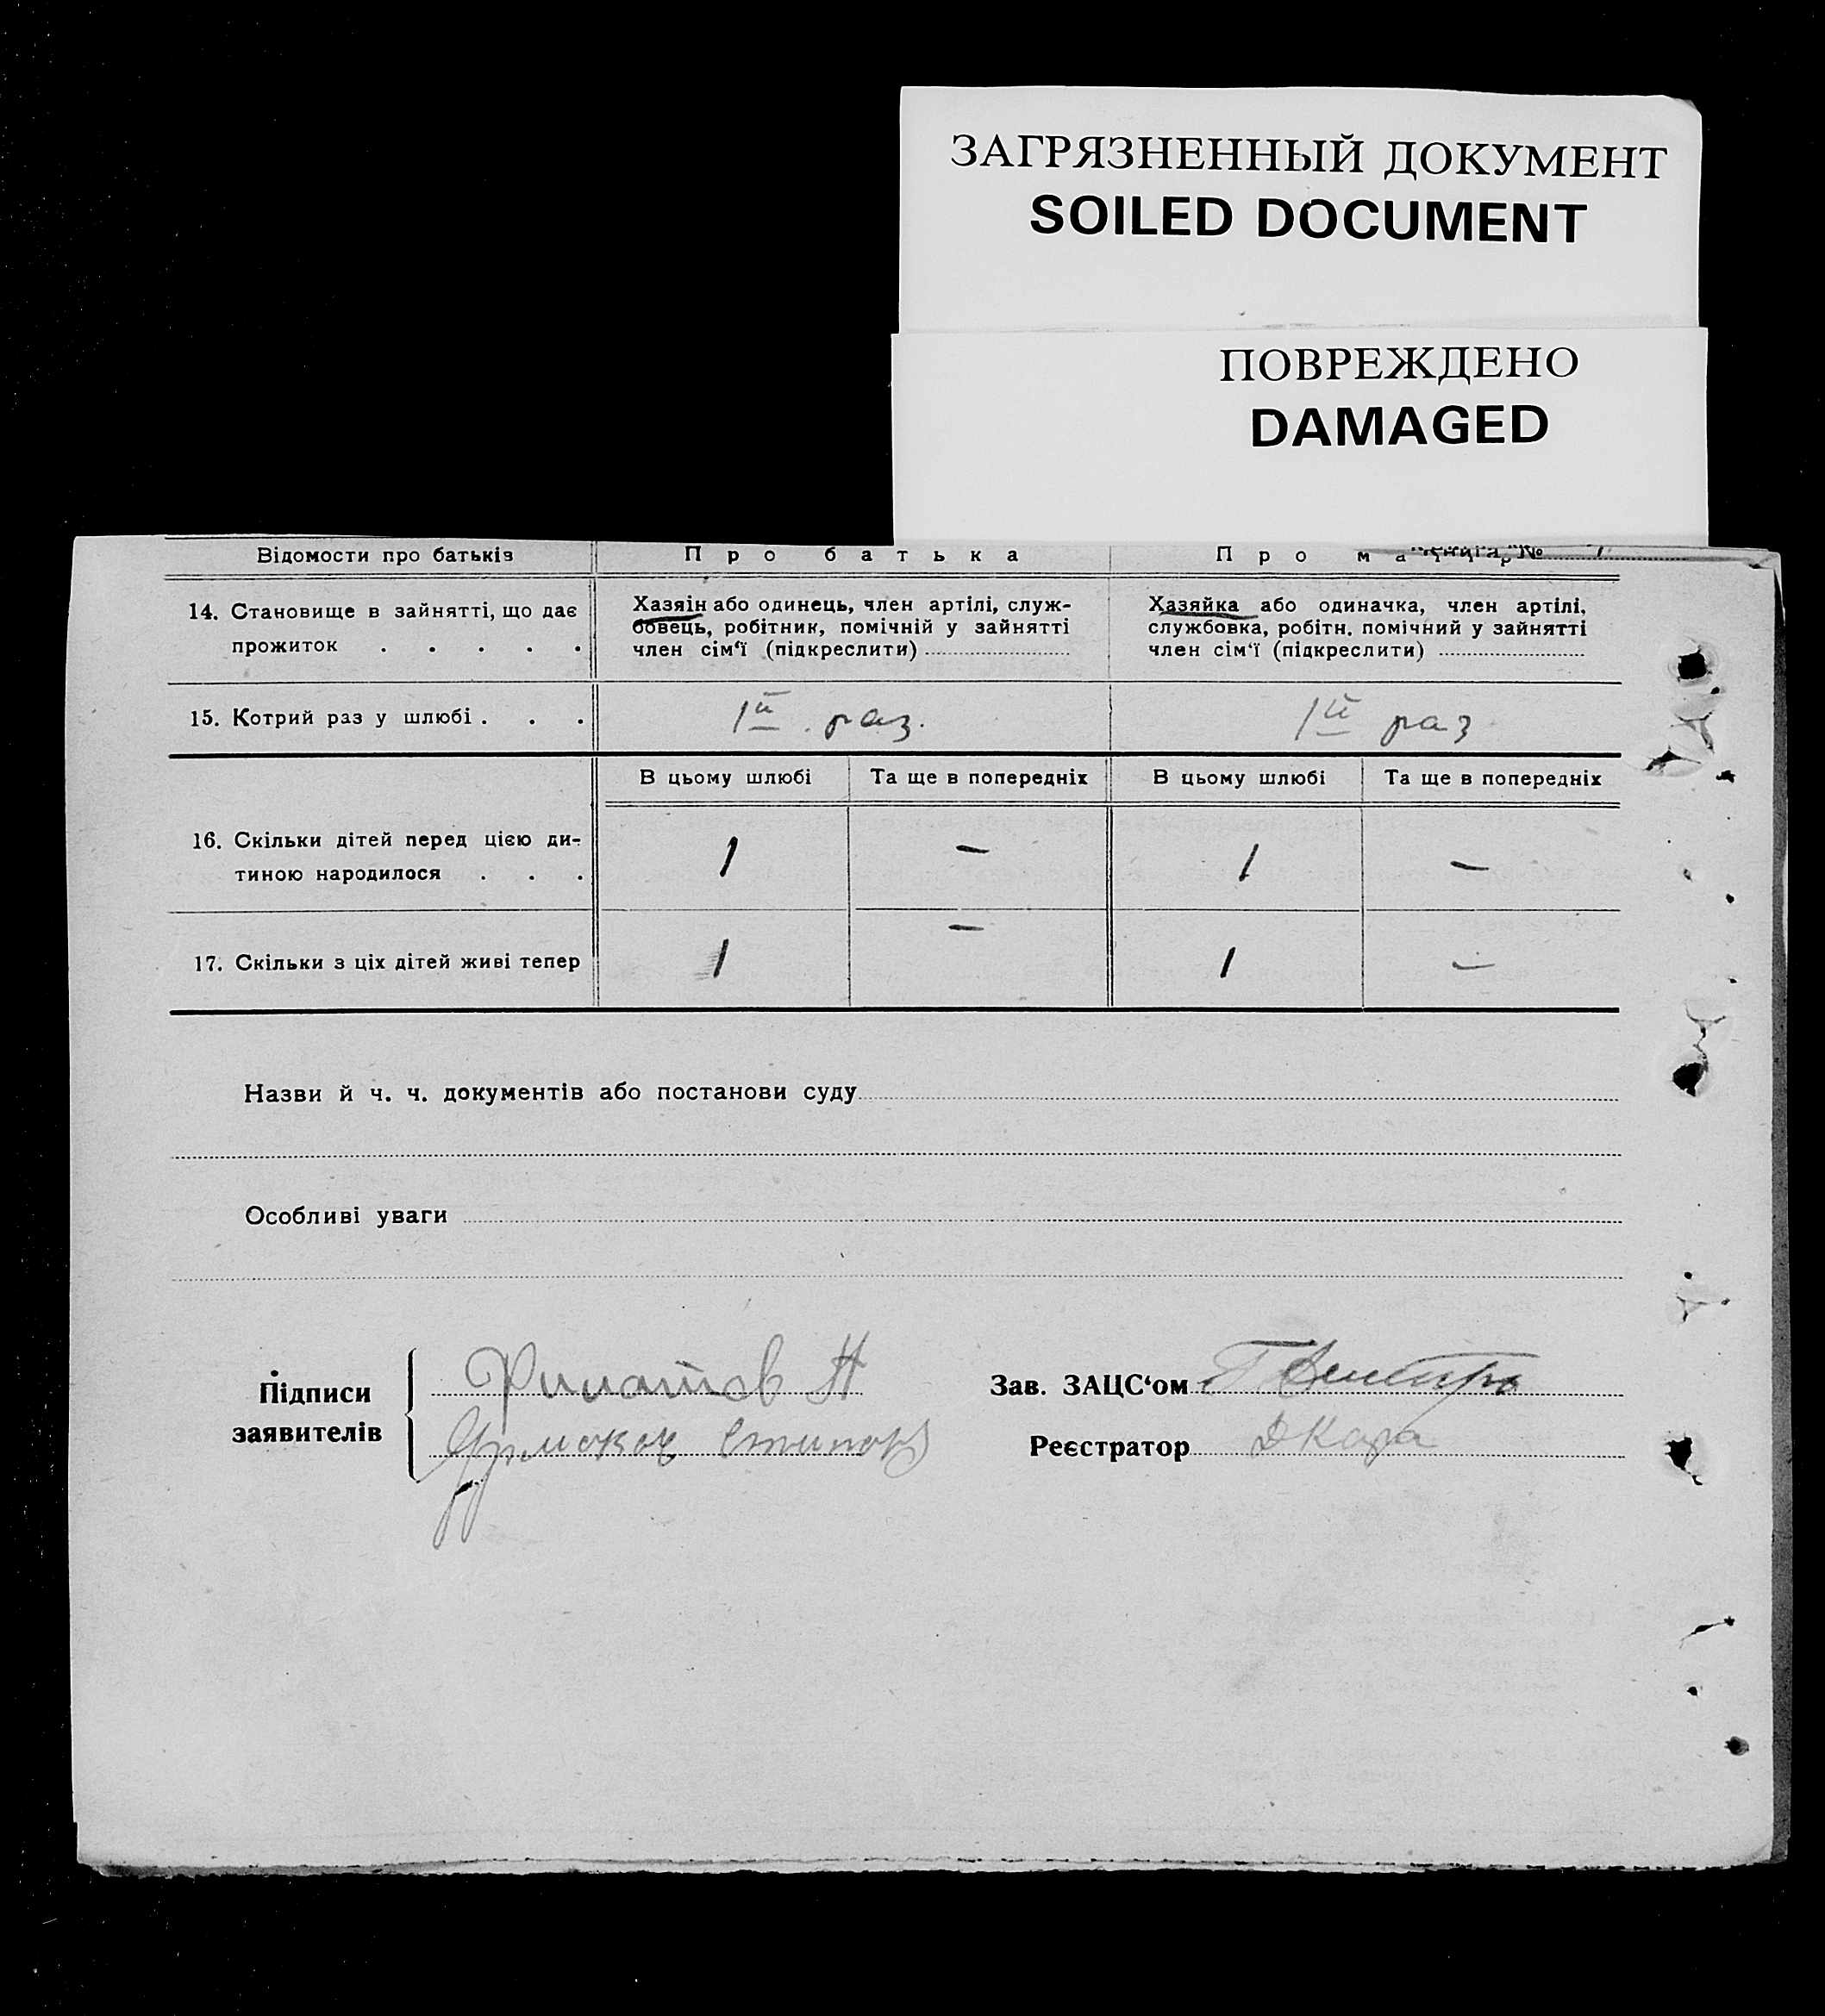 ЗАГРЯЗНЕННЫЙ ДОКУМЕНТ
SOILED DOCUMENT
ПОВРЕЖДЕНО
DAMAGED
Відомости про батьків
Про батька
Про ма
№
14. Становище в зайнятті, що дає
прожиток . . . . .
Хазяін або одинець, член артілі, служ-
бовець, робітник, помічній у зайнятті
член сім‘ї (підкреслити)
Хазяйка або одиначка, член артілі,
службовка, робітн. помічний у зайнятті
член сім‘ї (підкреслити)
15. Котрий раз у шлюбі . . .
1й раз.
1й раз
В цьому шлюбі
Та ще в попередніх
В цьому шлюбі
Та ще в попередніх
16. Скільки дітей перед цією ди-
тиною народилося . . .
1 – 1 –
17. Скільки з ціх дітей живі тепер
1 – 1 –
Назви й ч. ч. документів або постанови суду
Особливі уваги
Підписи
заявителів
Филатов Н
Зав. ЗАЦС‘ом
Реєстратор
ДКара